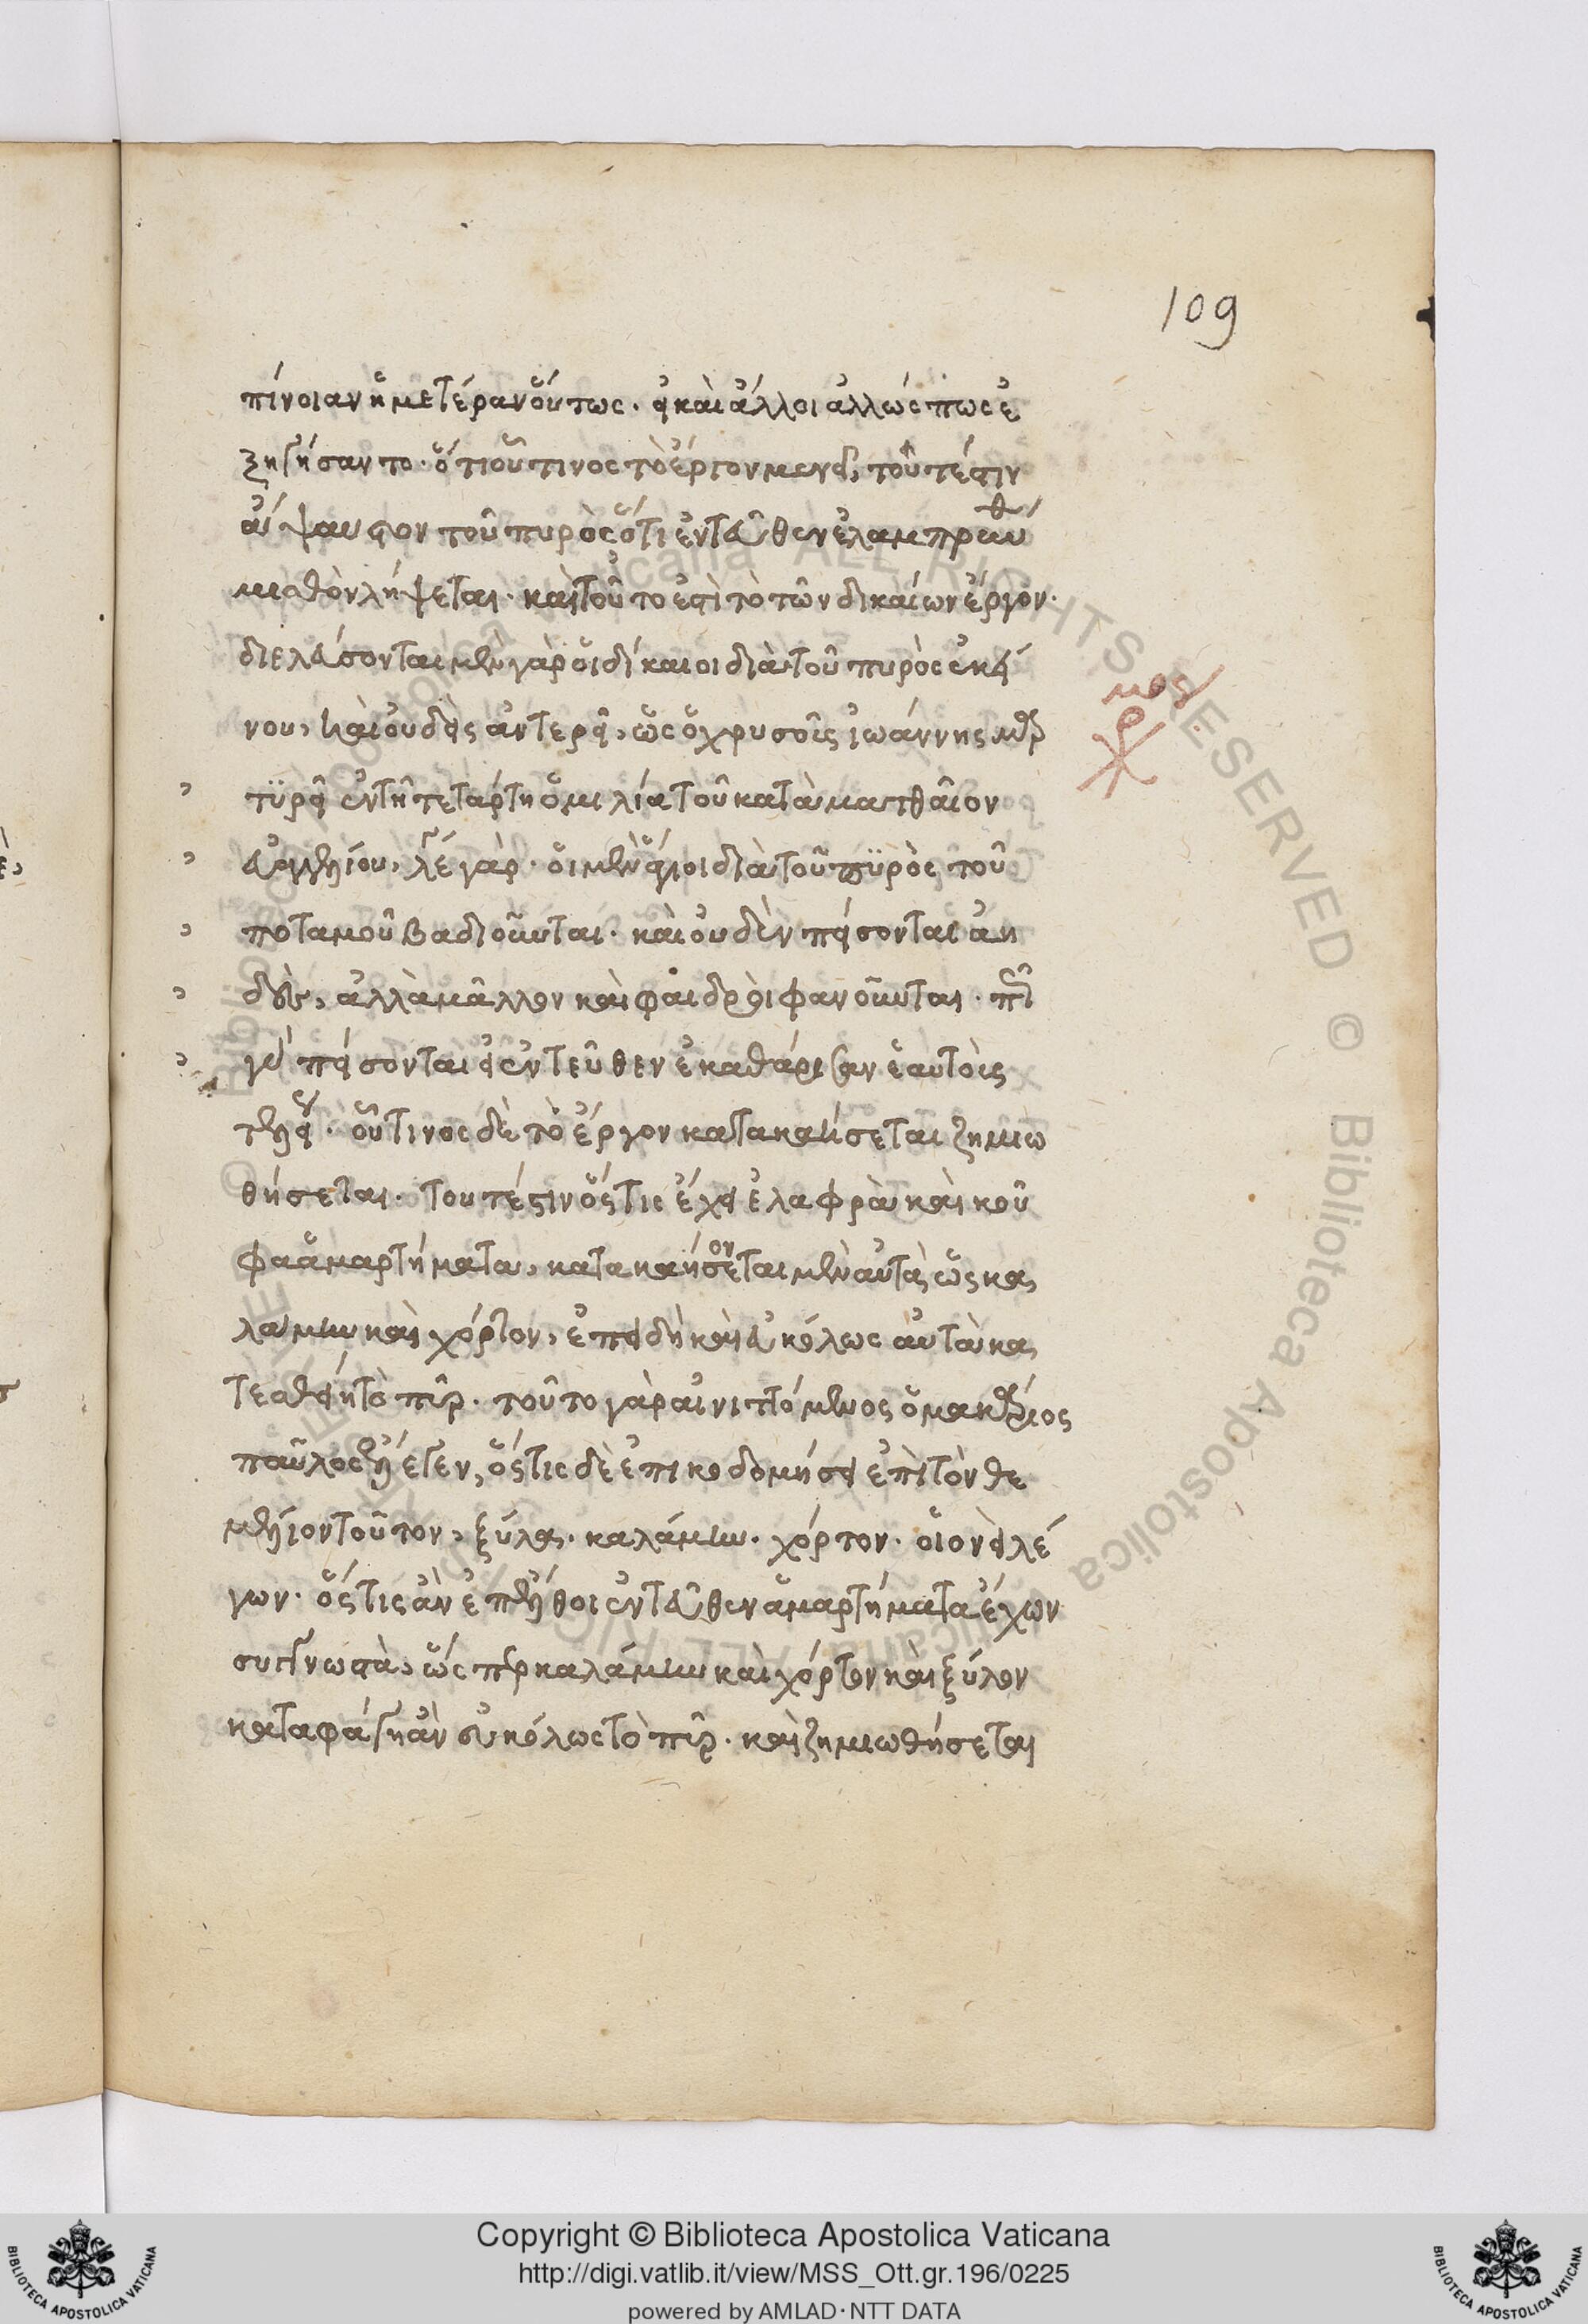 109
πίνοιαν ἡμετέραν οὕτως. εἰ καὶ ἄλλοι ἄλλως πως ἐ
ξηγήσαντο. ὅτι οὗτινος τὸ ἔργον μενεῖ, τοῦτέστιν
ἄψαυστον τοῦ πυρὸς ὅτι ἐντεῦθεν ἐλαμπρύνθη
μισθὸν λήψεται. καὶ τοῦτο ἐστὶ τὸ τῶν δικαίων ἔργον.
διελεύσονται μὲν γὰρ οἱ δίκαιοι διὰ τοῦ πυρὸς ἐκεί
νου, καὶ οὐδεὶς ἀντερεῖ, ὡς ὁ χρυσοῦς ἰωάννης μαρ
τϋρεῖ ἐν τῇ τετάρτη ὁμιλία τοῦ κατὰ ματθαῖον
εὐαγγελίου, λέγει γάρ. οἱ μὲν ἅγιοι διὰ τοῦ πϋρὸς τοῦ
ποταμοῦ βαδιοῦνται. καὶ οὐδὲν πείσονται ἀη
δὲς, ἀλλὰ μᾶλλον καὶ φαιδροὶ φανοῦνται.
πείσονται εἰ ἐντεῦθεν ἐκαθάρισαν ἑαυτοὺς
τελείως. οὗτινος δὲ τὸ ἔργον κατακαήσεται ζημιω
θήσεται. τουτέστιν ὅστις ἔχει ἐλαφρὰ καὶ κοῦ
φα ἁμαρτήματα, κατακαήσονται μὲν αὐτὰ ὡς κα
λάμην καὶ χόρτον, ἐπειδὴ καὶ εὐκόλως αὐτὰ κα
τεσθίει τὸ πῦρ. τοῦτο γὰρ αἰνιττόμενος ὁ μακάριος
παῦλος ἔλεγεν, ὅστις δὲ ἐποικοδομήσει ἐπὶ τὸν θε
μέλιον τοῦτον, ξύλα. καλάμην. χόρτον. οἱονεὶ λέ
γων. ὅστις ἂν ἐπέλθοι ἐντεῦθεν ἁμαρτήματα ἔχων
συγγνωστὰ, ὥσπερ καλάμην καὶ χόρτον καὶ ξύλον
καταφάγη ἂν εὐκόλως τὸ πῦρ. καὶ ζημιωθήσεται
Copyright © Biblioteca Apostolica Vaticana
http://digi.vatlib.it/view/MSS_Ott.gr.196/0225
powered by AMLAD · NTT DATA
BIBLIOTECA APOSTOLICA VATICANA
BIBLIOTECA APOSTOLICA VATICANA